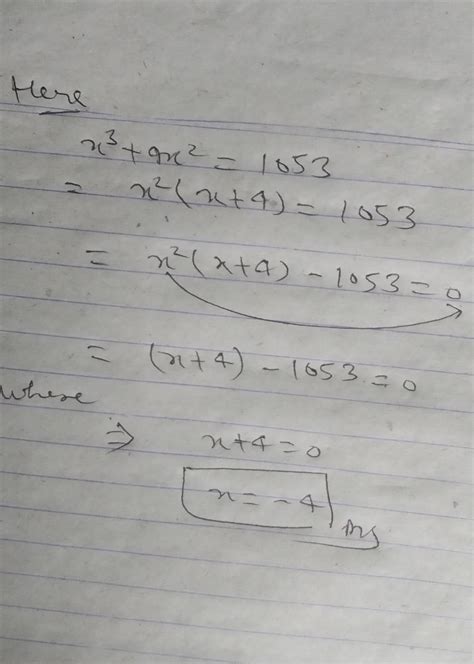 Here
x³+9x² = 1053
= x²(x+4) = 1053
= x²(x+4) - 1053 = 0
= (x+4) - 1053 = 0
where
⇒ x+4 = 0
x = -4 Ans